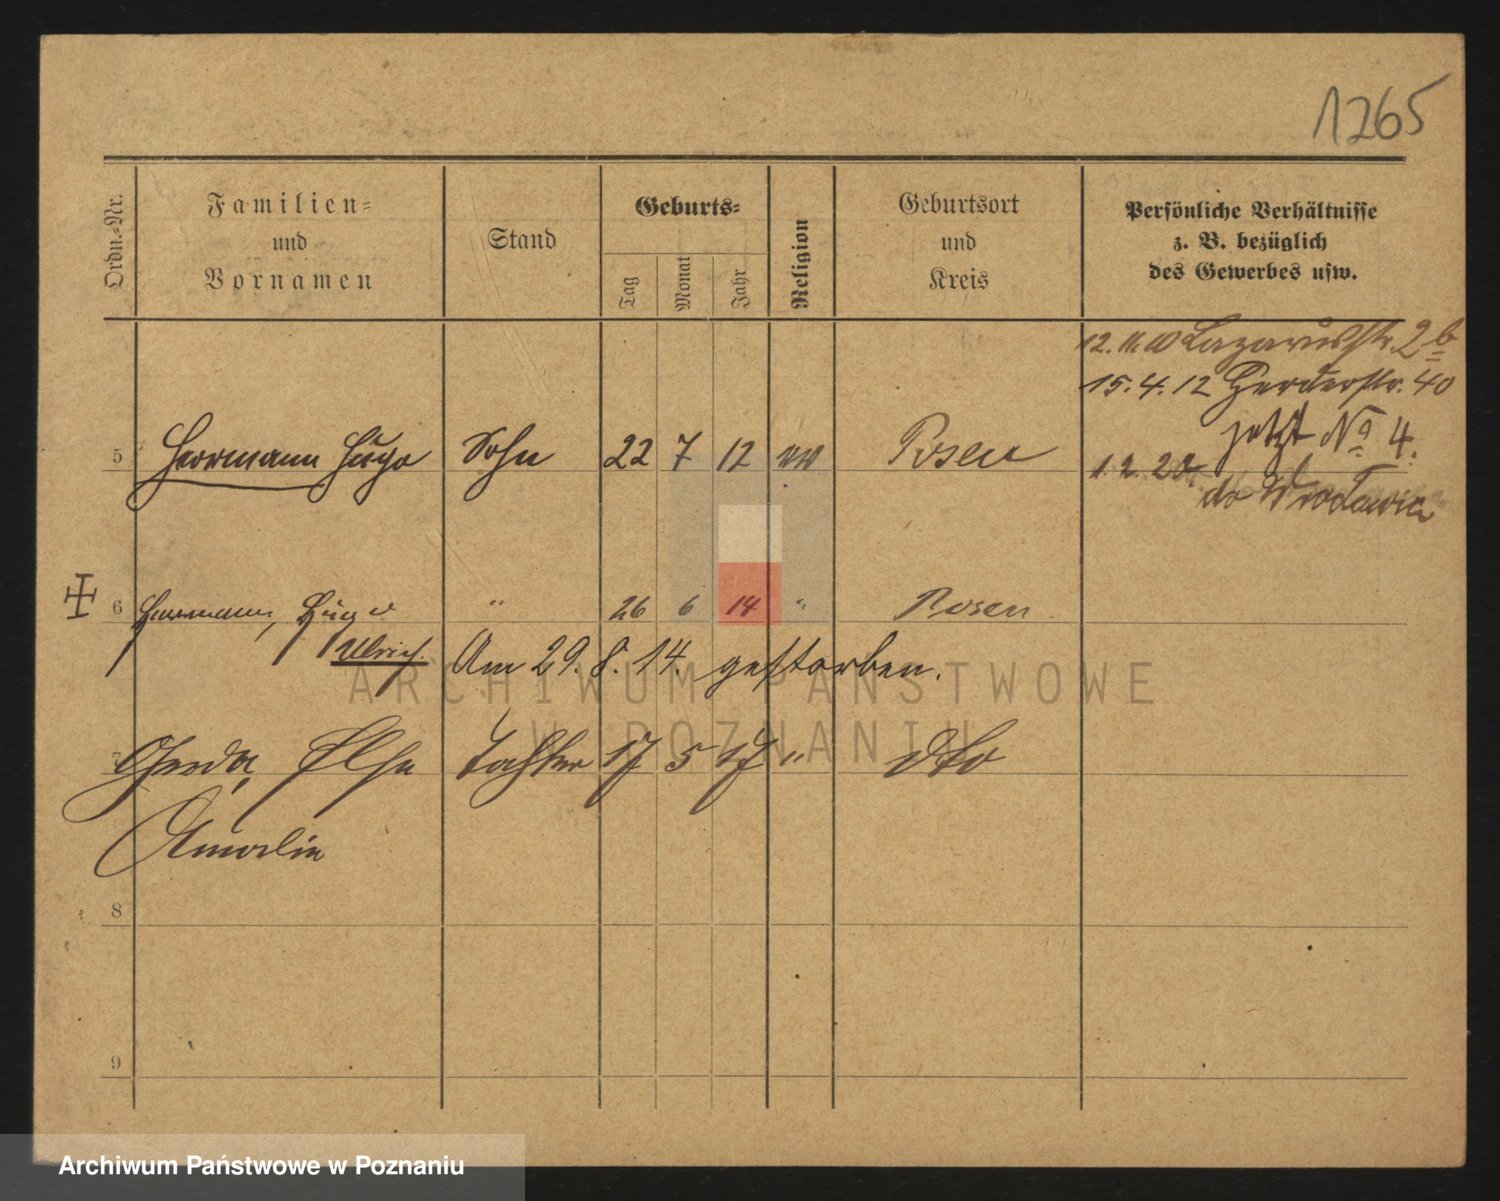 1265
Ordn.-Nr.
Familien-
und
Vornamen
Stand
Geburts-
Tag
Monat
Jahr
Religion
Geburtsort
und
Kreis
Persönliche Verhältnisse
z. B. bezüglich
des Gewerbes usw.
12. 11. 10 Lazarusstr. 2b
15. 4. 12 Herderstr. 40
jetzt No 4.
5 Herrmann Hugo Sohn 22 7 12 Posen
1. 2. 20
do Wrocławia
6 Herrmann, Hugo " 26 6 14 " Posen
Ulrich. Am 29. 8. 14. gestorben.
7 Gerda, Else Tochter 17 5 17 " dto
Amalie
8
9
ARCHIWUM PAŃSTWOWE
W POZNANIU
Archiwum Państwowe w Poznaniu